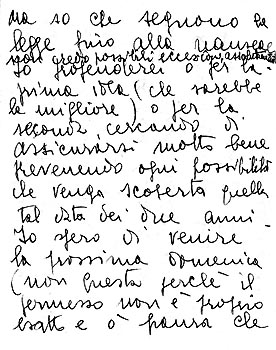 ma so che seguono la
legge fino alla nausea
non credo possibili eccezioni assolutamente
Io propenderei o per la
prima idea (che sarebbe
la migliore) o per la
seconda, cercando di
assicurarsi molto bene
prevenendo ogni possibilità
che venga scoperta quella
tal data dei due anni
Io spero di venire
la prossima domenica
(non questa perchè il
permesso non è proprio
esatto e ò paura che